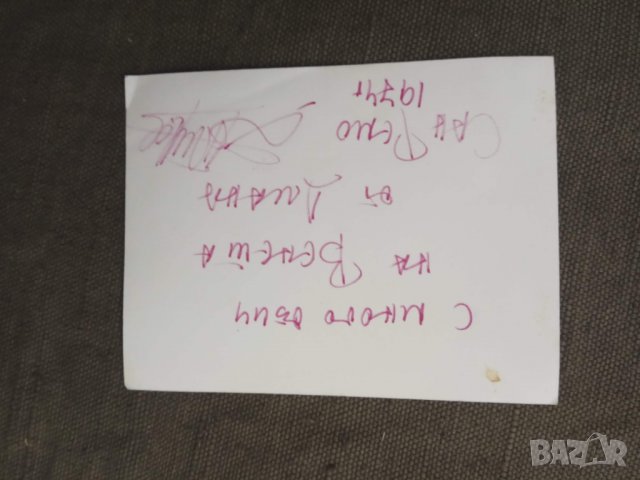 С много обич
на Венета
от Лиана
Сан Ремо
1974г
BAZAR